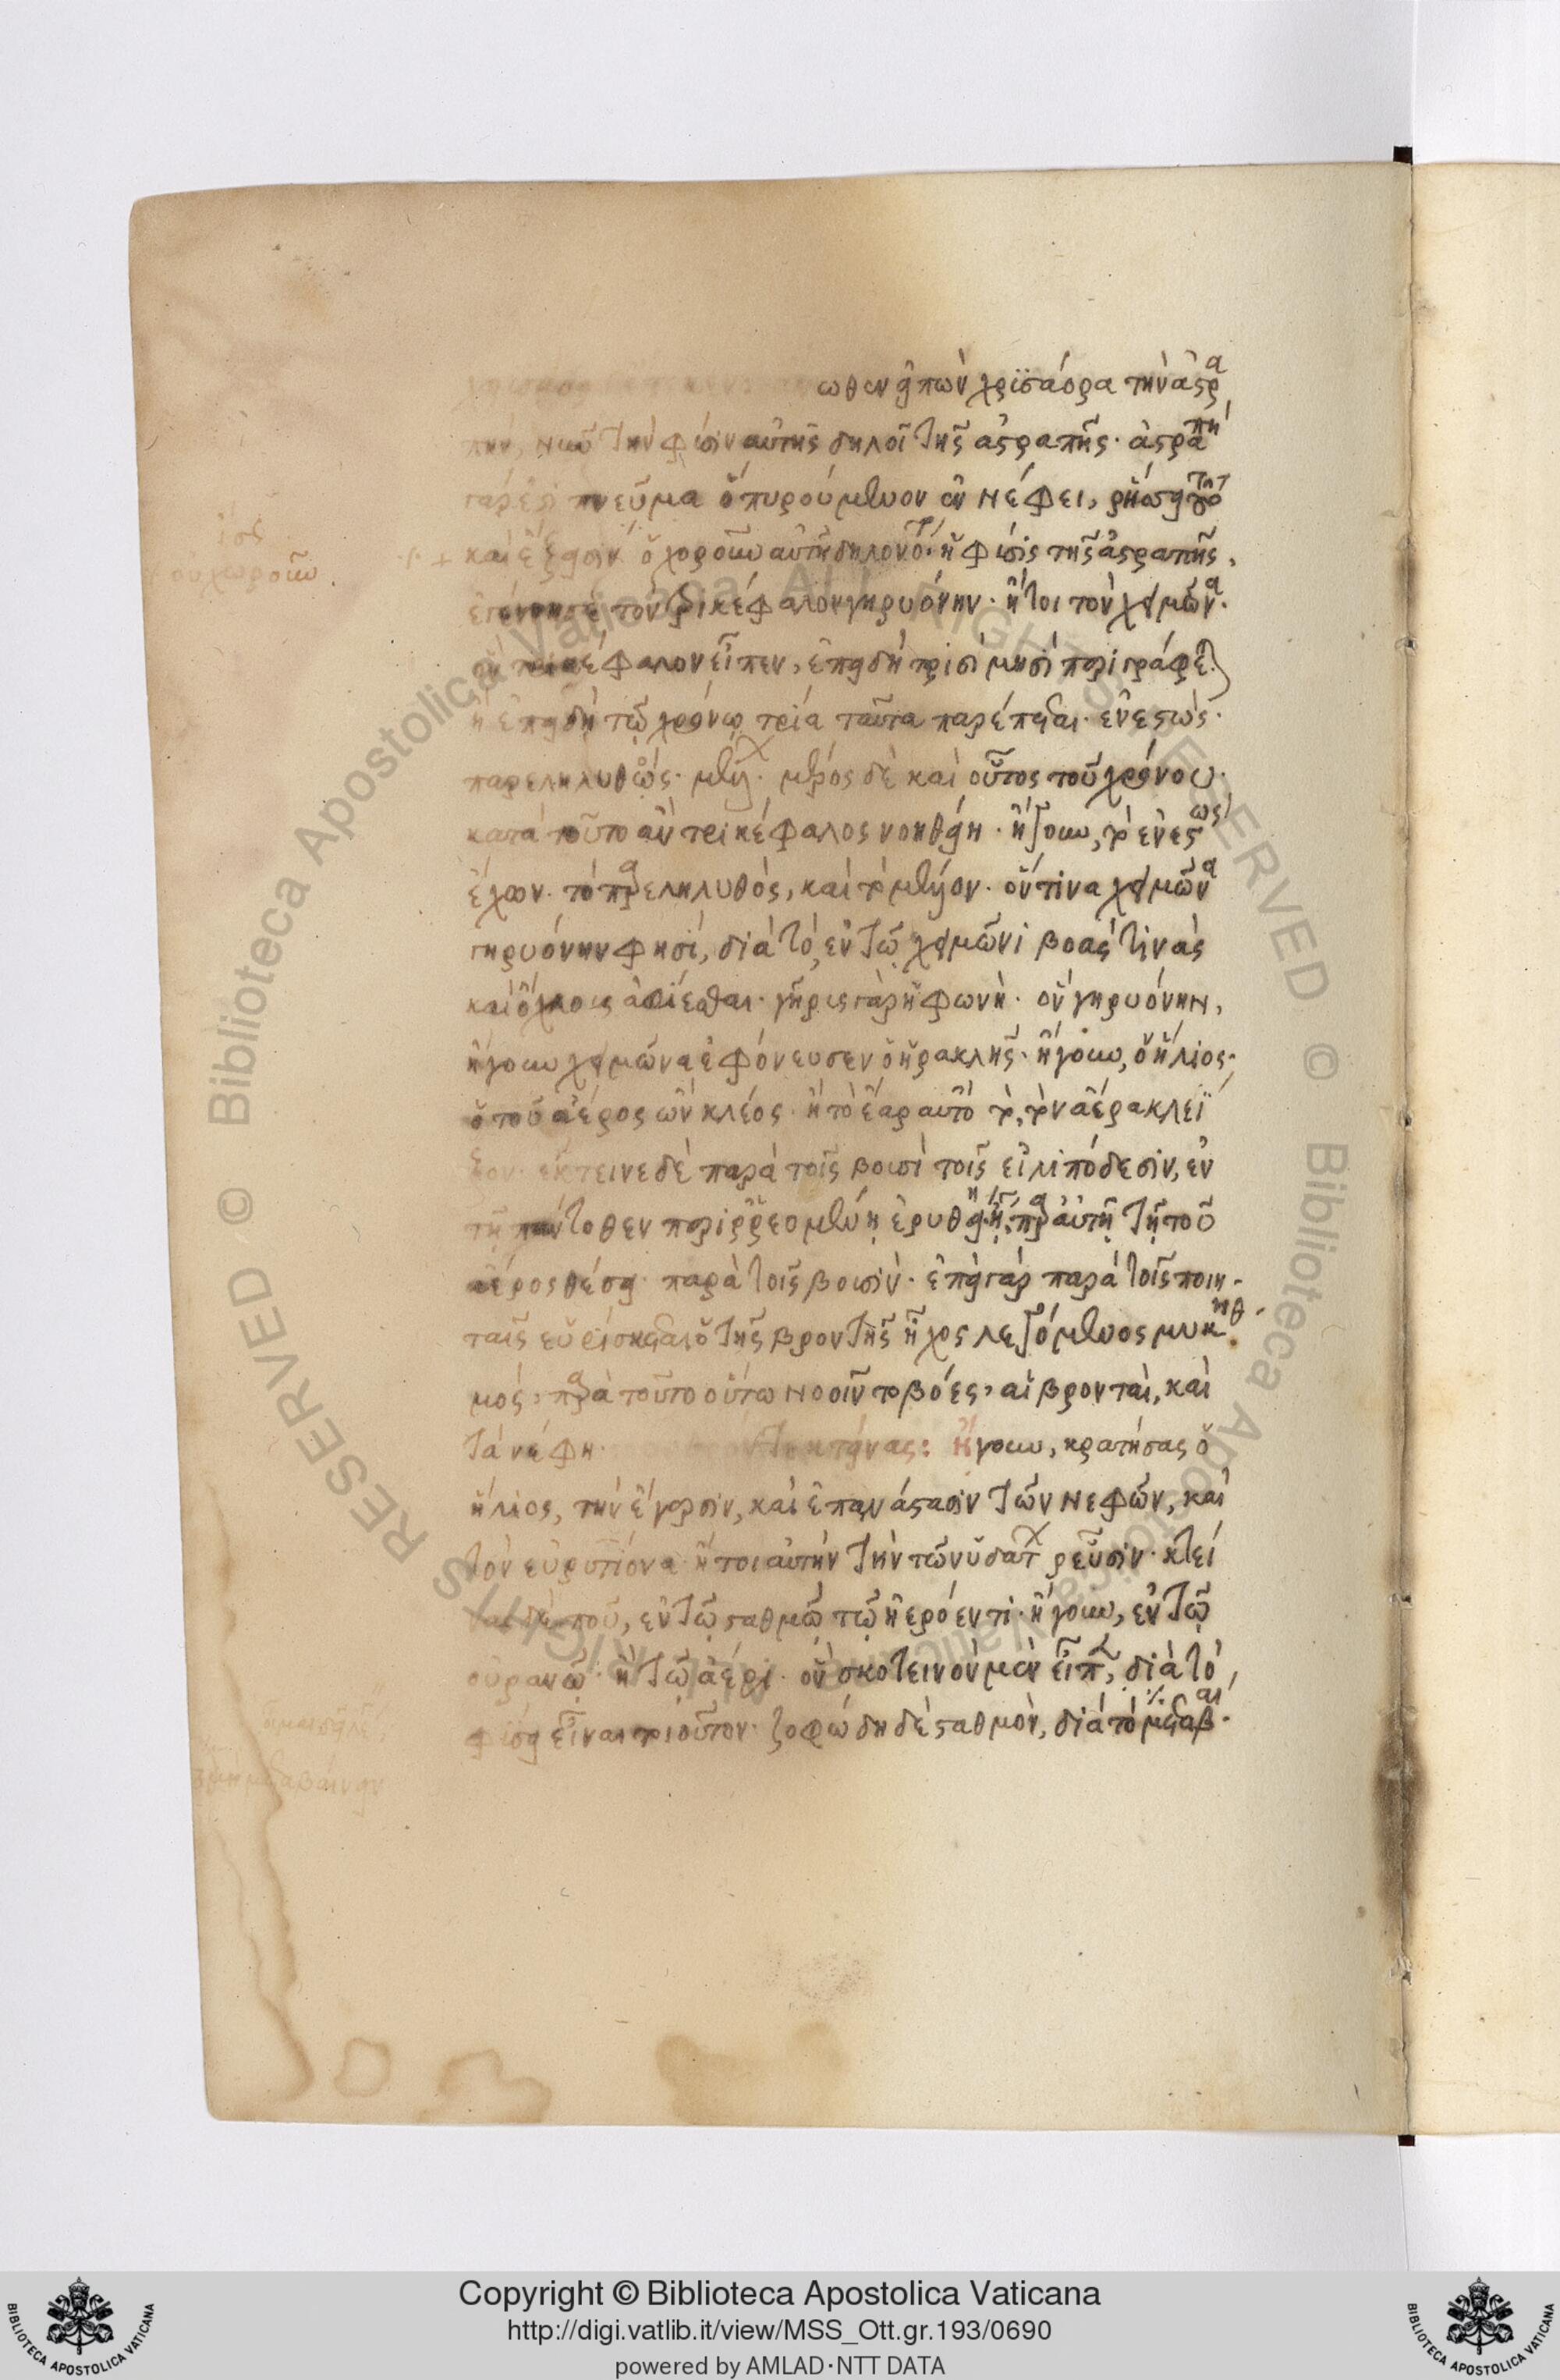 ωθεν εἰπὼν χρϊσάορα τὴν ἀστρα
πην, νῦν τὴν φύσιν αὐτῆς δηλοῖ τῆς ἀστραπῆς· ἀστραπὴ
γάρ ἐστι πνεῦμα ὃ πυρούμενον ἐν νέφει, ῥήσσει τοῦτο
ἰός
οὐχωροῦν.
καὶ ὃ χοροῦν αὐτῆ δηλονότι ἡ φύσις τῆς ἀστραπῆς,
τὸν τρικέφαλον γηρυόνην· ἤτοι τὸν χειμῶνα·
ὃν τρικέφαλον εἶπεν, ἐπειδὴ τρισὶ μησὶ περιγράφεται
ἢ ἐπειδὴ τῶ χρόνω τρία ταῦτα παρέπεται· ἐνεστὼς·
παρεληλυθὼς· μέλλων· μέρος δὲ καὶ οὗτος τοῦ χρόνου·
κατὰ τοῦτο ἂν τρικέφαλος νοηθείη· ἤγουν, τὸ ἐνεστὼς
ἔχων· τὸ παρεληλυθὸς, καὶ τὸ μέλλον· ὅντινα χειμῶνα
γηρυόνην φησὶ, διὰ τὸ, ἐν τῶ χειμῶνι βοάς τινὰς
καὶ ὄχλους ἀφίεσθαι· γῆρις γὰρ ἡ φωνὴ· ὃν γηρυόνην,
ἤγουν χειμῶνα ἐφόνευσεν ὁ ἡρακλῆς· ἤγουν, ὁ ἥλιος·
ὁ τοῦ ἀέρος ὢν κλέος· ἢ τὸ ἔαρ αὐτὸ τὸ, τὸν ἀέρα κλεῖ
ζον· ἔκτεινε δὲ παρὰ τοῖς βουσὶ τοῖς εἰλιπόδεσιν, ἐν
τῇ πάντοθεν περιρρεομένη ἐρυθείη· ἤγουν παρ αὐτῇ τῇ τοῦ
ἀέρος θέσει· παρὰ τοῖς βουσὶν· ἐπεὶ γὰρ παρὰ τοῖς ποιη-
ταῖς εὑρίσκεται ὁ τῆς βροντῆς ἦχος λεγόμενος μυκηθ-
μός· παρὰ τοῦτο οὕτω νοοῖντο βόες· αἱ βρονταὶ, καὶ
τὰ νέφη· κτείνας: ἤγουν, κρατήσας ὁ
ἥλιος, τὴν ἔγερσιν, καὶ ἐπανάστασιν τῶν νεφῶν, καὶ
τὸν εὐρυτίονα ἤτοι αὐτὴν τὴν τῶν ὑδάτων ῥεῦσιν· κτεί
νει δὲ ποῦ, ἐν τῶ σταθμῶ τῶ ἠερόεντι· ἤγουν, ἐν τῶ
οὐρανῶ· ἢ τῶ ἀέρι· ὃν σκοτεινὸν μὲν εἶπε, διὰ τὸ
φύσει εἶναι τοιοῦτον· ζοφώδη δὲ σταθμὸν, διὰ τὸ μεταβαί·
μεταβαίνειν
Copyright © Biblioteca Apostolica Vaticana
http://digi.vatlib.it/view/MSS_Ott.gr.193/0690
powered by AMLAD·NTT DATA
BIBLIOTECA APOSTOLICA VATICANA
BIBLIOTECA APOSTOLICA VATICANA